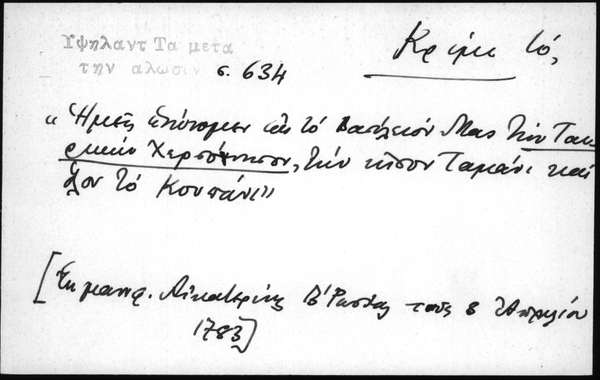 Υψηλαντ Τα μετα
την αλωσιν σ. 634
Κριμ τό,
"Ἡμεῖς εἰς τό Βασίλειόν Μας τήν Ταυ
ρικήν Χερσόνησον, τήν νῆσον Ταμάνι καί
ὅλον τό Κουπάνι"
[Ἐκ μανιφ. Αἰκατερίνης Β´ Ρωσίας τῆς 8 Ἀπριλίου
1783]